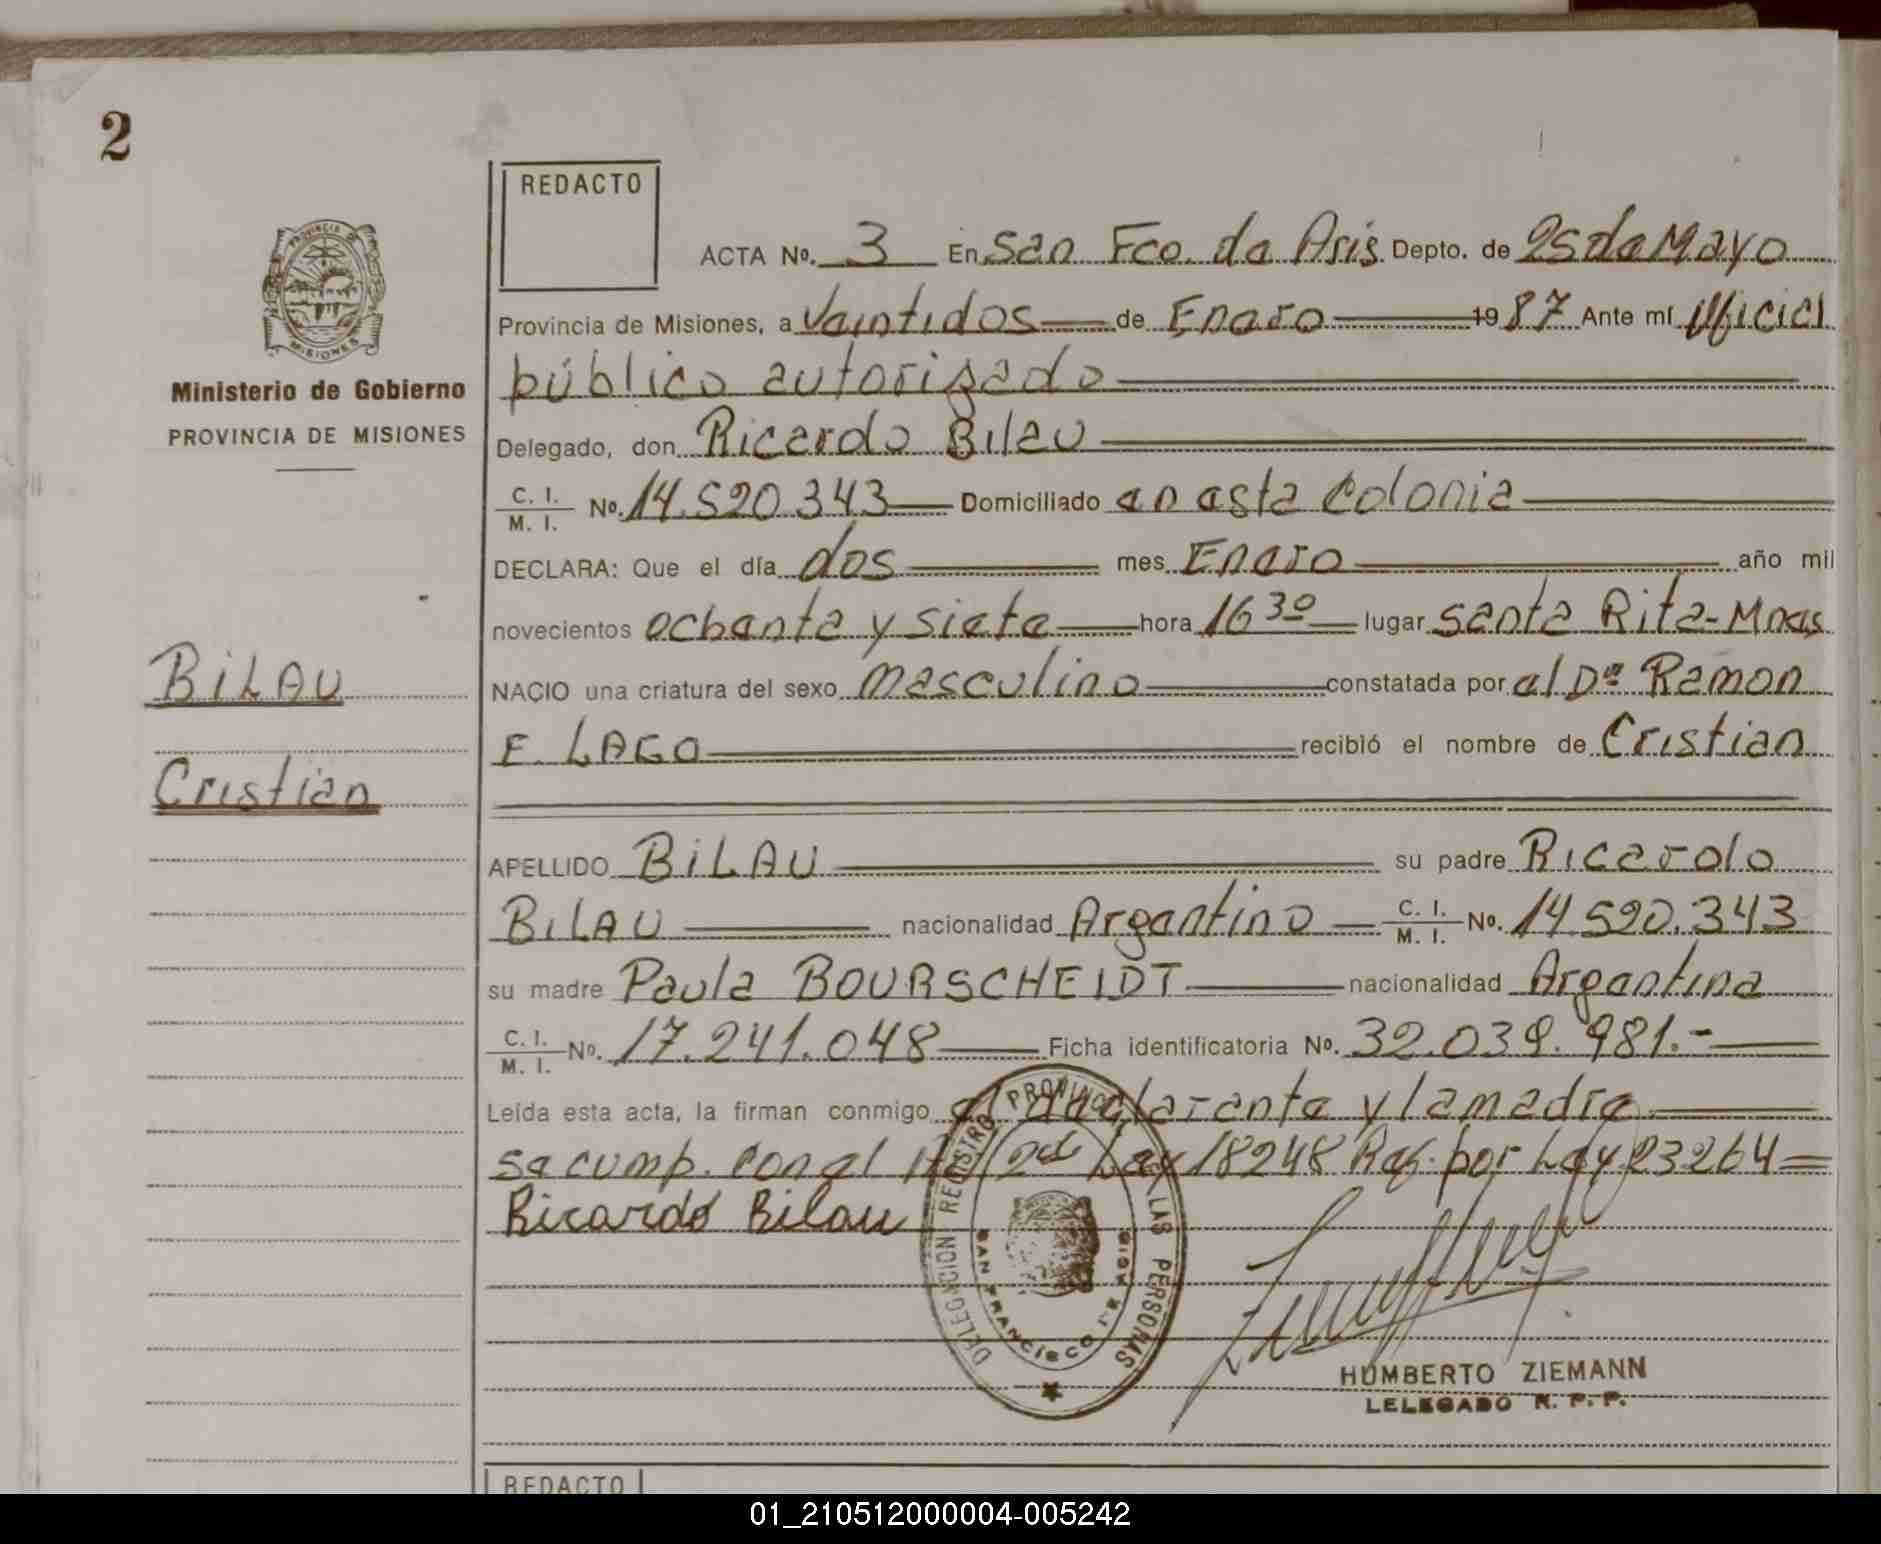 2
REDACTO
ACTA Nº. 3 En San Fco. de Asis Depto. de 25 de Mayo
Provincia de Misiones, a Veintidos de Enero 1987 Ante mí Oficial
público autorizado
Delegado, don Ricardo Bilau
C. I. / M. I. Nº. 14.520.343 Domiciliado en esta Colonia
DECLARA: Que el día dos mes Enero año mil
novecientos ochenta y siete hora 16 30 lugar Santa Rita-Mnes
NACIO una criatura del sexo masculino constatada por el Dr Ramon
F. LAGO recibió el nombre de Cristian
APELLIDO BiLAU su padre Ricardo
BiLAU nacionalidad Argentino C. I. / M. I. Nº. 14.520.343
su madre Paula BOURSCHEIDT nacionalidad Argentina
C. I. / M. I. Nº. 17.241.048 Ficha identificatoria Nº. 32.039.981.-
Leída esta acta, la firman conmigo el declarante y la madre
se cump. con el Ley 18248 Ref. por Ley 23264
Ricardo Bilau
HUMBERTO ZIEMANN
LELEGADO R. P. P.
DELEGACION REGISTRO PROVINCIAL LAS PERSONAS
SAN FRANCISCO
PROVINCIA DE
MISIONES
Ministerio de Gobierno
PROVINCIA DE MISIONES
BiLAU
Cristian
REDACTO
01_210512000004-005242